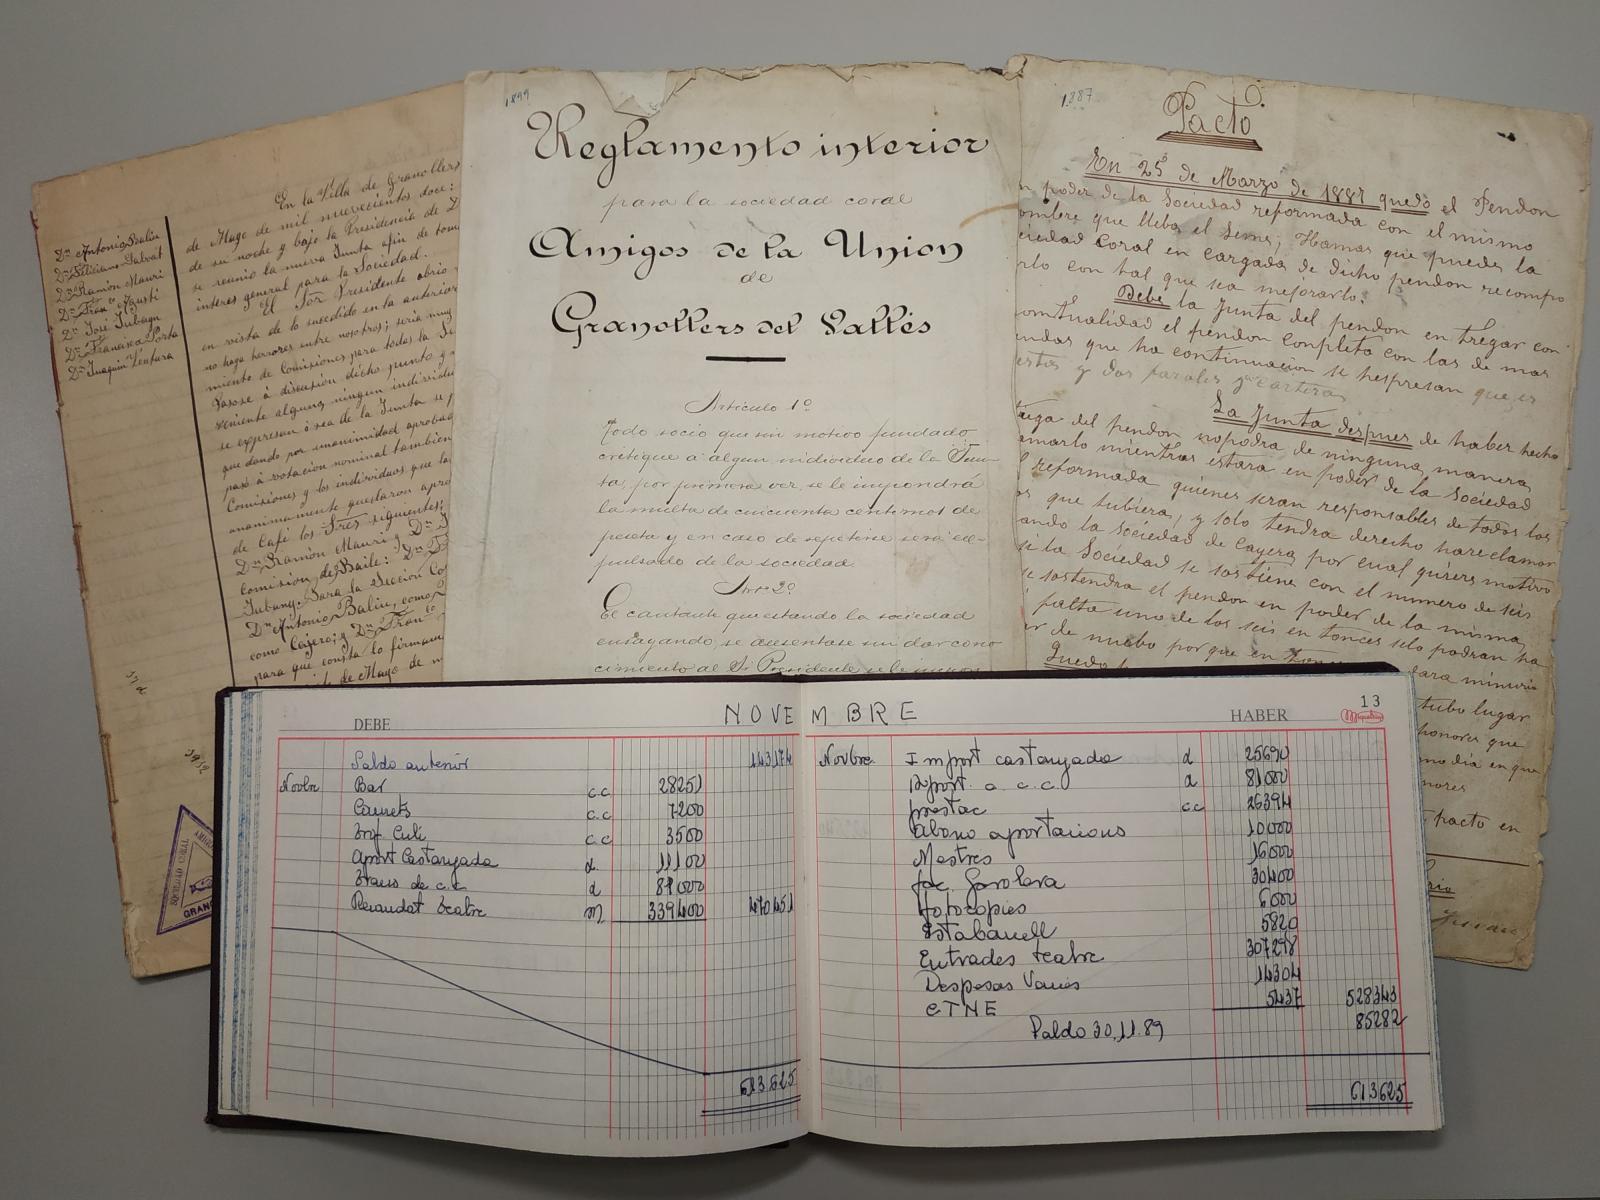 Dn. Antonio Baliu
Dn. Feliciano Salvat
Dn. Ramón Mauri
Dn. Franco. Agustí
Dn. José Jubany
Dn. Francisco Porta
Dn. Joaquín Ventura
En la Villa de Granollers
de Mayo de mil nuevecientos doce:
de su noche y bajo la Presidencia de D
se reunió la nueva Junta afin de tom
interes general para la Sociedad.
El Sor Presidente abrió
en vista de lo sucedido en la anterior
no haya horrores entre nosotros; sería muy
miento de Comisiones para todas la
á discusion dicho punto y
alguno, ningun individuo
se expresan ó sea de la Junta se
que dando por unanimidad aprobad
pasó a votación nominal tambien
Comisiones y los individuos que la
unanimamente quedaron apro
de Café los Sres siguientes;
Dn Ramón Mauri y Dn J
Comision de Baile: Dn F
Jubany. Para la Sección Co
Dn Antonio Baliu, como
como Cajero; y Dn Fran co
para que consta lo firmam
de Mayo de
1912
SOCIEDAD CORAL
AMIG
GRAN
1899
Reglamento interior
para la sociedad coral
Amigos de la Union
de
Granollers del Vallés
Articulo 1º
Todo socio que sin motivo fundado
critique a algun individuo de la Jun-
ta, por primera vez se le impondrá
la multa de cincuenta centimos de
peseta y en caso de repetirse será es-
pulsado de la sociedad.
Art. 2º
El cantante que estando la sociedad
ensayando, se ausentase sin dar cono
cimiento al Sr Presidente se le impon
1887
Pacto
En 25 de Marzo de 1887 quedó el Pendon
n poder de la Sociedad reformada con el mismo
ombre que lleba el Lema; Hamas que pueda la
ciedad Coral en cargada de dicho pendon recompo
rlo con tal que sea mejorarlo.
Debe la Junta del pendon en tregar con
puntualidad el pendon conpleto con las de mas
endas que ha continuacion se hespresan que es
estos y dos
La Junta despues de haber hecho
trega del pendon nopodra de ninguna manera
amarlo mientras estara en poder de la Sociedad
reformada quienes seran responsables de todos los
os que tubiera, y solo tendra derecho hareclamar
ando la sociedad se cayera por cual quiera motivo
si la Sociedad se sostiene con el numero de seis
se sostendra el pendon en poder de la misma,
falta uno de los seis en tonces selo podran ha
er de nuebo por que en tonces
Quedo
tubo lugar
honores que
mo dia en que
nores
pacto en
NOVEMBRE
DEBE
Saldo anterior 143174
Novbre Bar c.c 28251
Carnets c.c 7200
c.c 3500
Aport Castanyada d. 11100
Trans de c.c d 81000
Recaudat teatre m 339400 470451
613.625
HABER 13
Miquelrius
Novbre. Import castanyada d 25690
Report. a c.c. d 81000
cc 26394
Abono aportacions 10000
Mestres 16000
Fac. Garolera 30400
Fotocopies 6000
Estabanell 5820
Entrades teatre 307298
Despeses Varies 14304
CTNE 5437 528343
Saldo 30.11.89 85282
613625